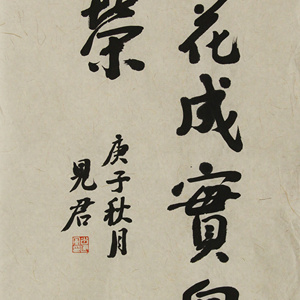 花成實
榮
庚子秋月
見君